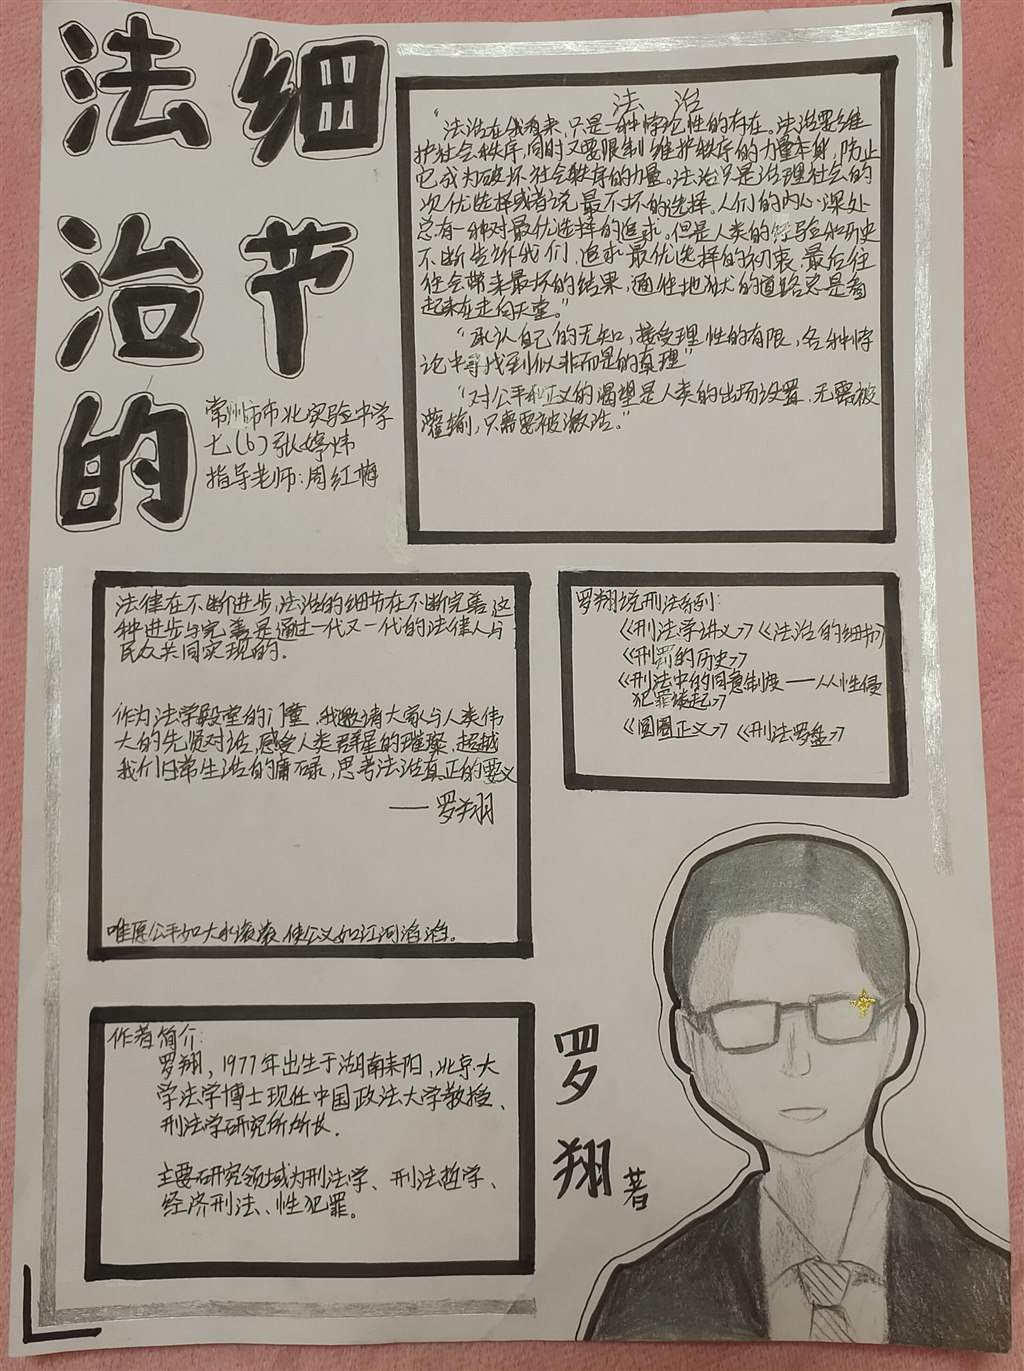 法治的
细节
常州市市北实验中学
七(6)张婷炜
指导老师:周红梅
法 治
“法治在我看来,只是一种悖论性的存在。法治要维
护社会秩序,同时又要限制维护秩序的力量本身,防止
它成为破坏社会秩序的力量。法治只是治理社会的
次优选择或者说最不坏的选择。人们的内心深处
总有一种对最优选择的追求。但是人类的经验和历史
不断告诉我们,追求最优选择的初衷最后往
往会带来最坏的结果,通往地狱的道路总是看
起来在走向天堂。”
“承认自己的无知,接受理性的有限,各种悖
论中寻找到似非而是的真理”
“对公平和正义的渴望是人类的出场设置,无需被
灌输,只需要被激活。”
法律在不断进步,法治的细节在不断完善这
种进步与完善是通过一代又一代的法律人与
民众共同实现的.
作为法学殿堂的门童,我邀请大家与人类伟
大的先贤对话,感受人类群星的璀璨,超越
我们日常生活的庸碌,思考法治真正的要义
——罗翔
唯愿公平如大水滚滚,使公义如江河滔滔。
罗翔说刑法系列:
《刑法学讲义》《法治的细节》
《刑罚的历史》
《刑法中的同意制度——从性侵
犯罪谈起》
《圆圈正义》《刑法罗盘》
作者简介:
罗翔,1977年出生于湖南耒阳,北京大
学法学博士现任中国政法大学教授、
刑法学研究所所长.
主要研究领域为刑法学、刑法哲学、
经济刑法、性犯罪。
罗翔著